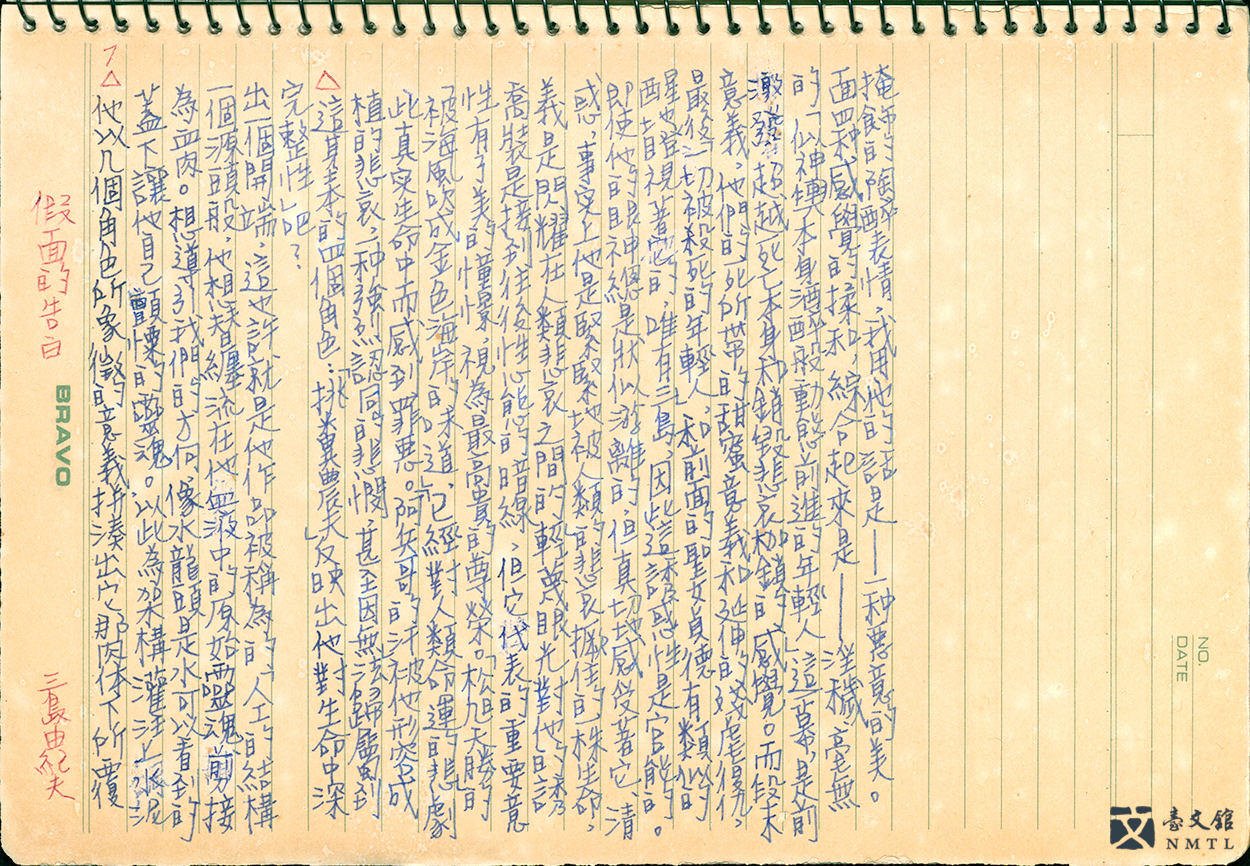 假面的告白 三島由紀夫
BRAVO
7
△ 他以几個角色所象徵的意義拼湊出它那肉体下所覆
蓋下讓他自己顫慄的靈魂。以此為架構灌注上水泥
為血肉。想導引我們的方向,像水龍頭是水可以看到的
一個源頭般,他想看纏流在他血液中的原始靈魂剪接
出一個開端,這也許就是他作品被稱為的「人工的結構
完整性」吧?
△ 這基本的四個角色:挑糞農夫反映出他對生命中深
植的悲哀,一種強烈認同的悲憫,甚至因無法歸屬到
此真实生命中而感到罪惡。阿兵哥的汗被他形容成
「被海風吹成金色海岸的味道」,已經對人類命運的悲劇
性有了美的憧憬,視為最高貴的尊榮。松旭天勝的
喬裝是接到往後性態的暗線,但它代表的重要意
義是閃耀在人類悲哀之間的輕蔑眼光對他的誘
惑,事实上他是緊緊地被「人類的悲哀」擄住的一株生命,
即使他的眼神總是狀似游離的,但真切地感受著它,清
醒地瞪視著它的,唯有三島,因此這誘惑性是官能的。
最後一切被殺死的年輕人,和前面的聖女貞德有類似的
意義,他們的死所帶的甜蜜意義和延伸的殘虐
激發起超越死亡本身和銷毀悲哀枷鎖的感覺。而段末
的「似神輿本身酒醉般動態前進的年輕人」這一幕,是前
面四種感覺的揉和,綜合起來是——淫穢毫無
掩飾的陶醉表情,我用他的話是——一種惡意的美。
NO.
DATE
臺文館
NMTL